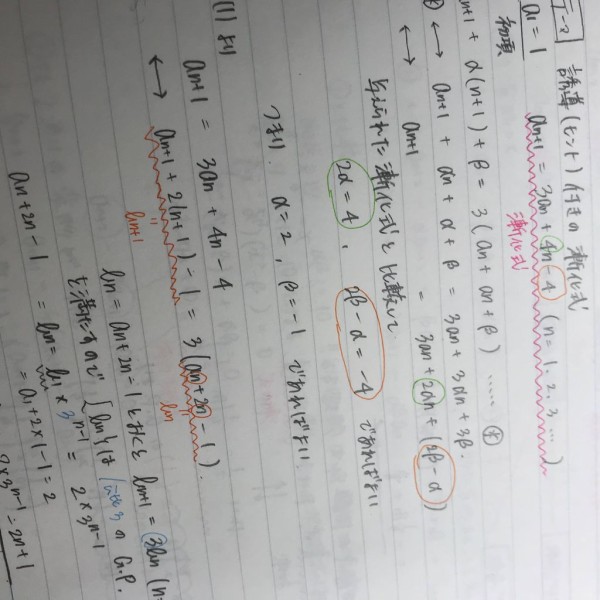 テーマ 誘導(ヒント)付きの漸化式
a1 = 1 an+1 = 3an + 4n - 4 (n = 1, 2, 3 …)
初項 漸化式
an+1 + α(n+1) + β = 3(an + αn + β) …… ㊛
↔ an+1 + αn + α + β = 3an + 3αn + 3β.
↔ an+1 = 3an + 2αn + (2β - α)
与えられた漸化式と比較して
2α = 4, 2β - α = -4 であればよい
つまり. α = 2, β = -1 であればよい
(1) より
an+1 = 3an + 4n - 4
↔ an+1 + 2(n+1) - 1 = 3(an + 2n - 1).
bn+1 bn
bn = an + 2n - 1 とおくと bn+1 = 3bn (n=
を満たすので {bn}は 公比3 の G.P.
bn = b1 × 3^n-1 = 2 × 3^n-1
= a1 + 2×1 - 1 = 2
an + 2n - 1
2 × 3^n-1 - 2n + 1